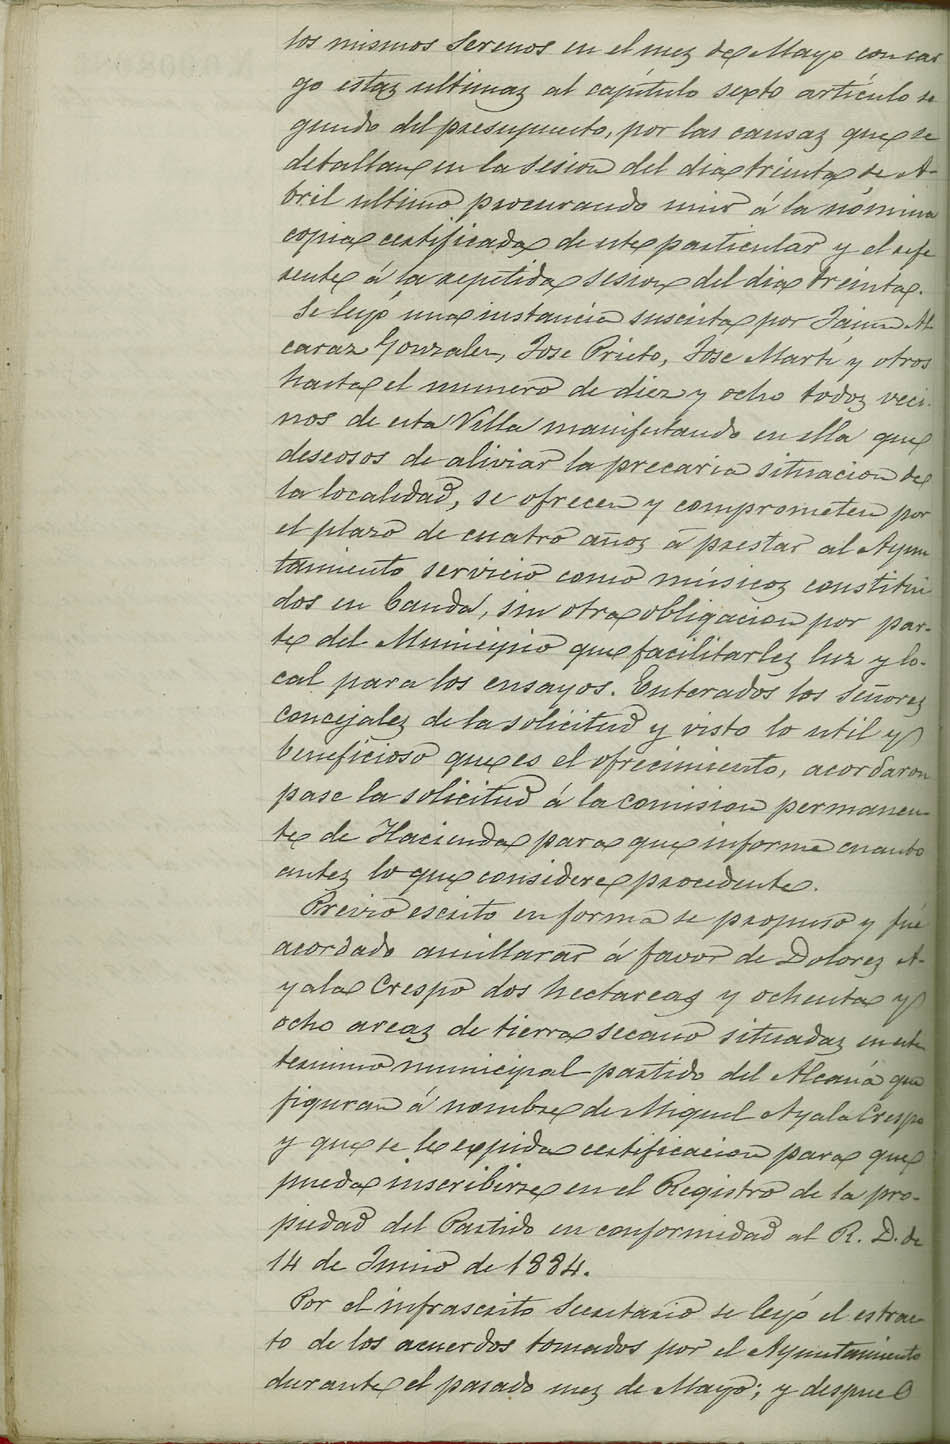 los mismos Serenos en el mez de Mayo con car
go estaz ultimaz al capítulo sexto artículo se
gundo del presupuesto, por las causaz que se
detallan en la sesion del dia treinta de A-
bril ultimo procurando unir á la nómina
copia certificada de este particular y el refe
rente á la repetida sesion del dia treinta.
Se leyó una instancia suscrita por Jaime Al
caraz Gonzalez, Jose Prieto, Jose Martí y otros
hasta el numero de diez y ocho todoz veci-
nos de esta Villa manifestando en ella que
deseosos de aliviar la precaria situacion de
la localidad, se ofrecen y comprometen por
el plazo de cuatro añoz á prestar al Ayun
tamiento servicio como músicoz constitui
dos en banda, sin otra obligacion por par-
te del Municipio que facilitarlez luz y lo-
cal para los ensayos. Enterados los señorez
concejalez de la solicitud y visto lo util y
beneficioso que es el ofrecimiento, acordaron
pase la solicitud á la comision permanen-
te de Hacienda para que informe cuanto
antez lo que considere procedente.
Previo escrito en forma se propuso y fué
acordado amillarar á favor de Dolorez A-
yala Crespo dós hectareaz y ochenta y
ocho areaz de tierra secano situadaz en este
termino municipal partido del Alcaná que
figuran á nombre de Miguel Ayala Crespo
y que se le expida certificacion para que
pueda inscribirze en el Registro de la pro-
piedad del Partido en conformidad al R. D. de
14 de Junio de 1884.
Por el infrascrito Secretario se leyó el estrac
to de los acuerdos tomados por el Ayuntamiento
durante el pasado mez de Mayo; y despues